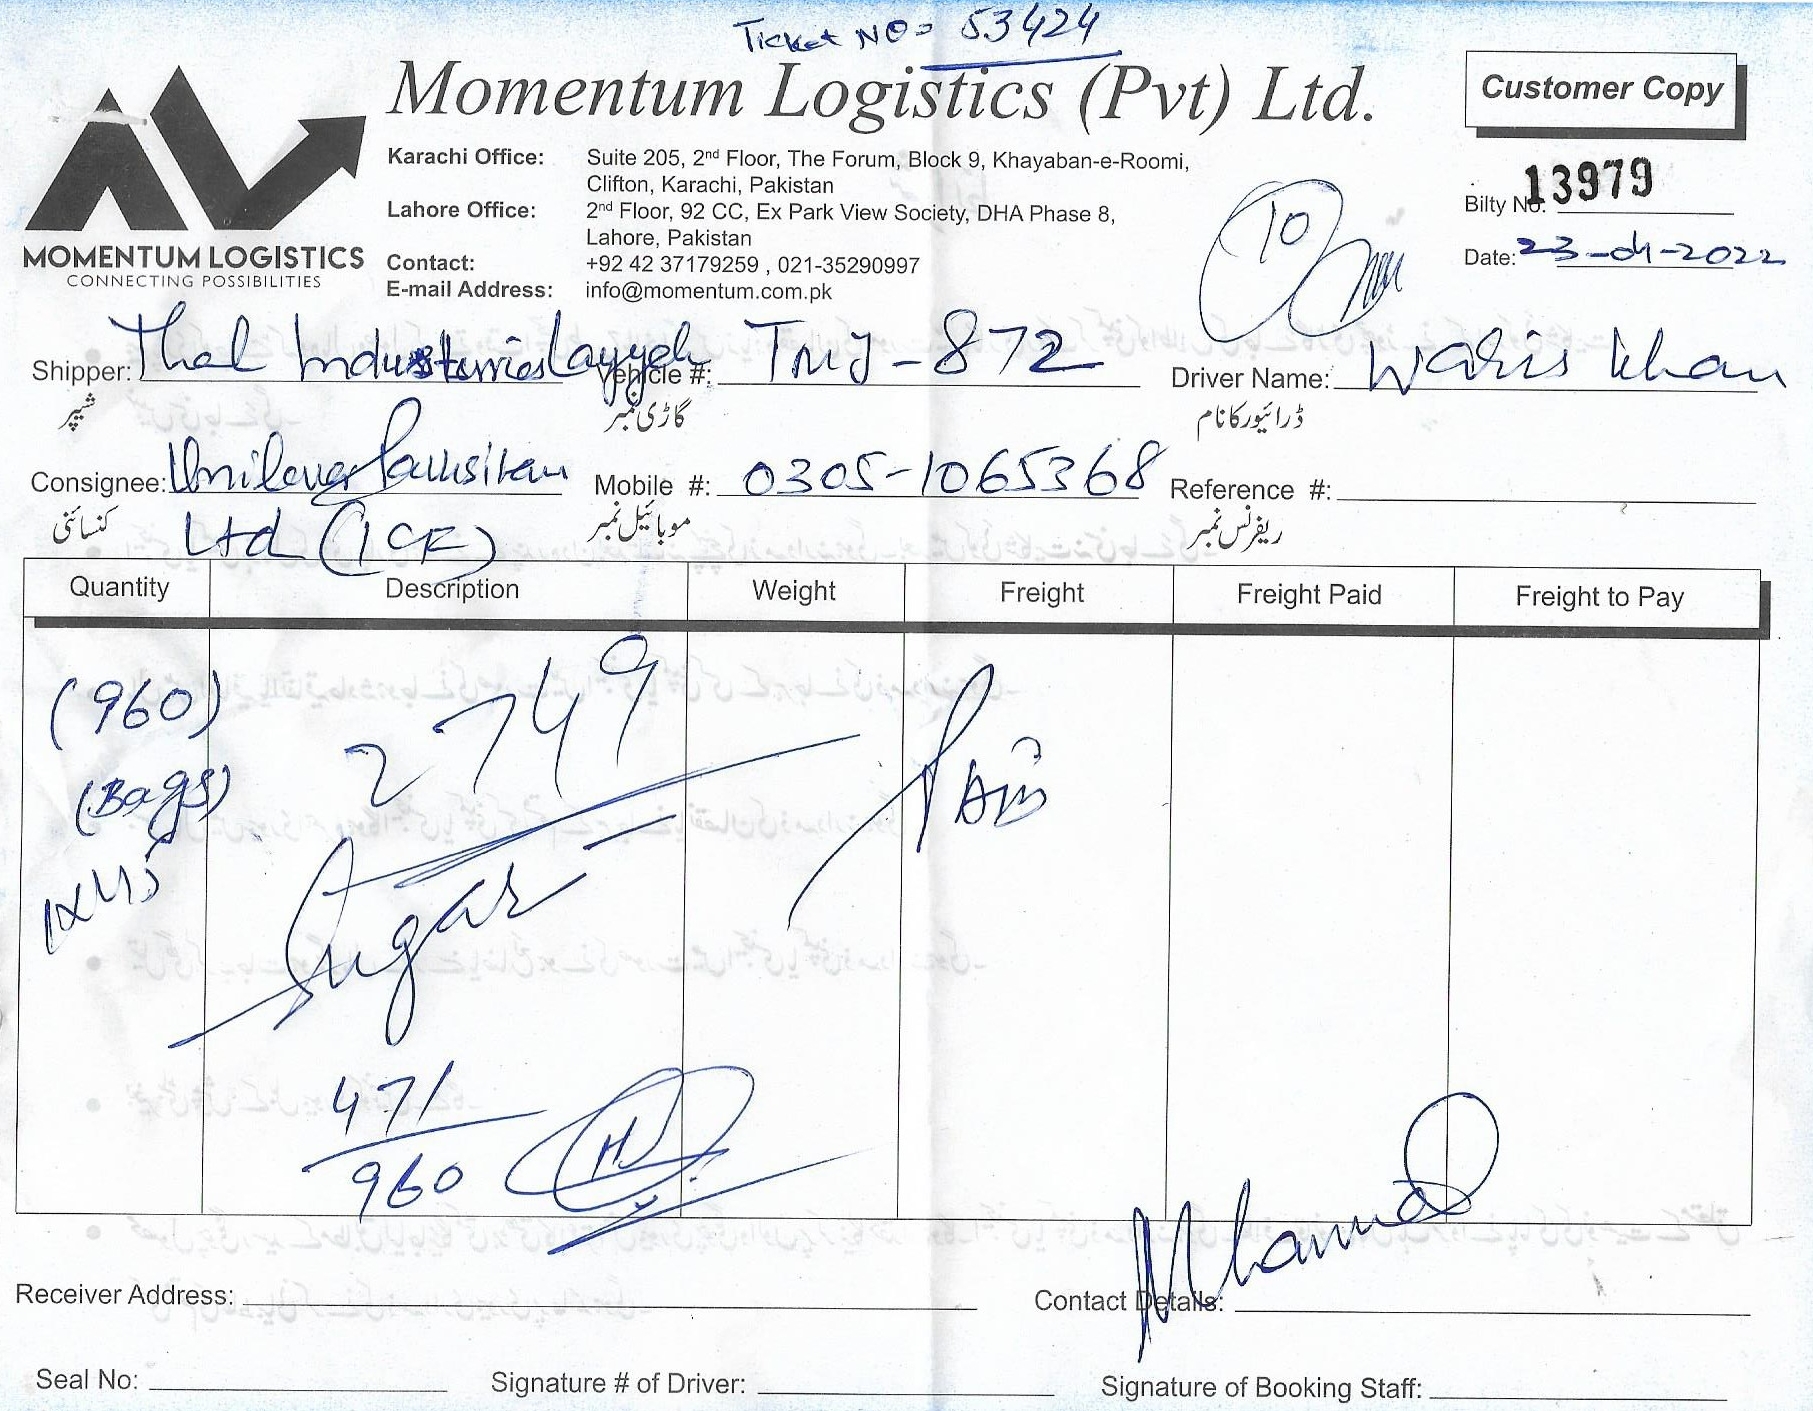 Ticket NO= 53424
Momentum Logistics (Pvt) Ltd.
Customer Copy
MOMENTUM LOGISTICS
CONNECTING POSSIBILITIES
Karachi Office: Suite 205, 2nd Floor, The Forum, Block 9, Khayaban-e-Roomi,
Clifton, Karachi, Pakistan
Lahore Office: 2nd Floor, 92 CC, Ex Park View Society, DHA Phase 8,
Lahore, Pakistan
Contact: +92 42 37179259 , 021-35290997
E-mail Address: info@momentum.com.pk
Bilty No. 13979
Date: 23-04-2022
10
Shipper: Thal Industries Layyah Vehicle #: TMJ-872 Driver Name: Waris Khan
شپر گاڑی نمبر ڈرائیور کا نام
Consignee: Unilever Mobile #: 0305-1065368 Reference #:
Ltd (ICF)
کنسائنی موبائیل نمبر ریفرنس نمبر
Quantity Description Weight Freight Freight Paid Freight to Pay
(960) 2749
(Bags) PAID
Sugar
471/
960
Receiver Address: Contact Details:
Seal No: Signature # of Driver: Signature of Booking Staff: